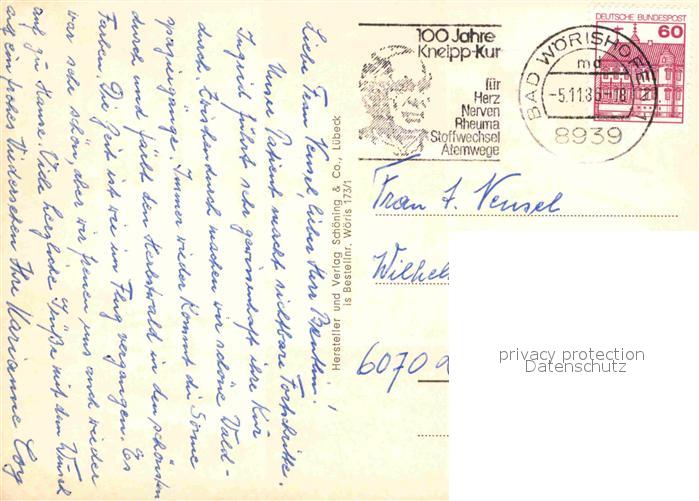 Liebe Frau Neusel, lieber Herr Beutlein!
Unser Patient macht sichtbare Fortschritte.
Ingrid führt sehr gewissenhaft ihre Kur
durch. Zwischendurch machen wir schöne Wald-
spaziergänge. Immer wieder kommt die Sonne
durch und färbt den Herbstwald in den schönsten
Farben. Die Zeit ist wie im Flug vergangen. Es
war sehr schön, aber wir freuen uns auch wieder
auf zu Hause. Viele herzliche Grüße mit dem Wunsch
auf ein frohes Wiedersehen Ihre Marianne
Hersteller und Verlag Schöning & Co., Lübeck
is Bestellnr. Wöris 173/1
100 Jahre
Kneipp-Kur
für
Herz
Nerven
Rheuma
Stoffwechsel
Atemwege
BAD WÖRISHOFEN 1
md
-5.11.86-18
8939
DEUTSCHE BUNDESPOST
60
Frau A. Neusel
Wilhel
6070
privacy protection
Datenschutz